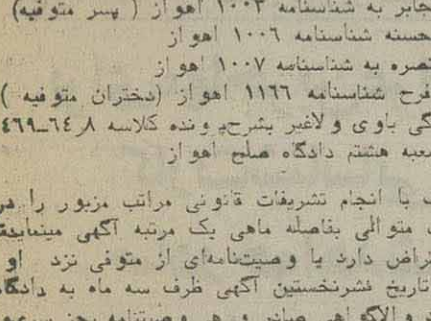 جابر به شناسنامه ۱۰۰۳ اهواز ( پسر متوفیه)
حسنه شناسنامه ۱۰۰۶ اهواز
نصره به شناسنامه ۱۰۰۷ اهواز
فرح شناسنامه ۱۱۶۶ اهواز (دختران متوفیه )
گی باوی ولاغیر بشرح پرونده کلاسه ۶۴٫۸ـ۴۶۹
شعبه هشتم دادگاه صلح اهواز
با انجام تشریفات قانونی مراتب مزبور را در
متوالی بفاصله ماهی یک مرتبه آگهی مینماید
دارد یا وصیتنامه‌ای از متوفی نزد او
تاریخ نشر نخستین آگهی ظرف سه ماه به دادگاه
والا گواهی صادر و هر وصیتنامه بجز